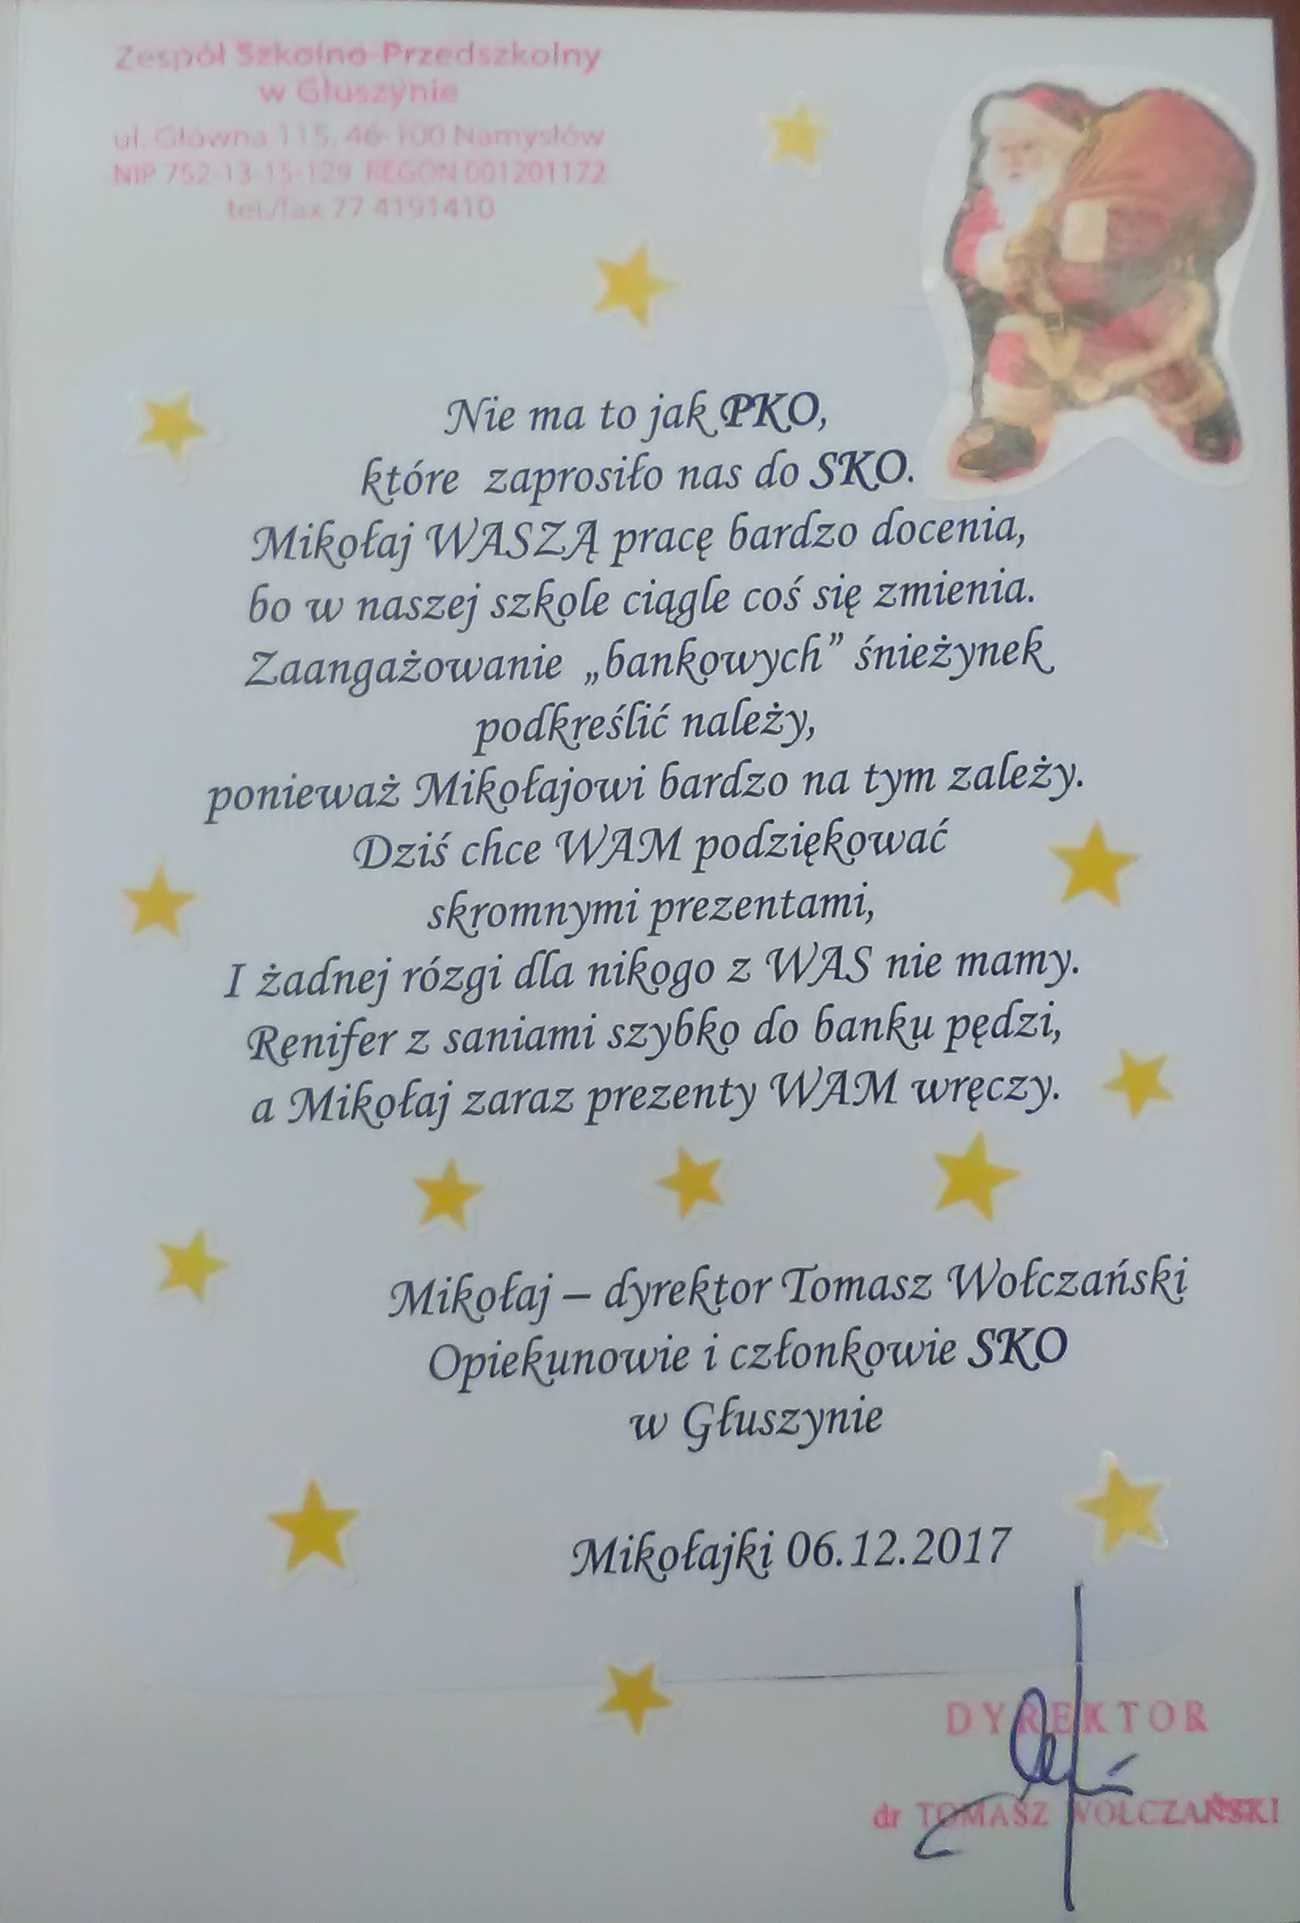 Zespół Szkolno-Przedszkolny
w Głuszynie
ul. Główna 115, 46-100 Namysłów
NIP 752-13-15-129 REGON 001201172
tel./fax 77 4191410
Nie ma to jak PKO,
które zaprosiło nas do SKO.
Mikołaj WASZĄ pracę bardzo docenia,
bo w naszej szkole ciągle coś się zmienia.
Zaangażowanie „bankowych” śnieżynek
podkreślić należy,
ponieważ Mikołajowi bardzo na tym zależy.
Dziś chce WAM podziękować
skromnymi prezentami,
I żadnej rózgi dla nikogo z WAS nie mamy.
Renifer z saniami szybko do banku pędzi,
a Mikołaj zaraz prezenty WAM wręczy.
Mikołaj – dyrektor Tomasz Wołczański
Opiekunowie i członkowie SKO
w Głuszynie
Mikołajki 06.12.2017
DYREKTOR
dr TOMASZ WOŁCZAŃSKI